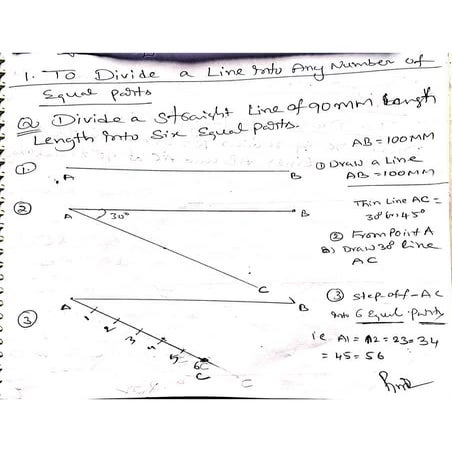 1. To Divide a Line into Any Number of
Equal parts
Q Divide a straight Line of 90mm Length
Length into Six Equal parts.
AB = 100MM
① Draw a Line
AB = 100MM
① A B
Thin Line AC =
30° or 45°
② A 30° B
C
② From Point A
Draw 30° Line
AC
③ A B
1 2 3 4 5 6C
C C
③ step off - AC
into 6 Equal parts
ie A1 = 12 = 23 = 34
= 45 = 56